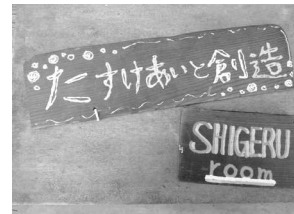 たすけあいと創造
SHIGERU
room